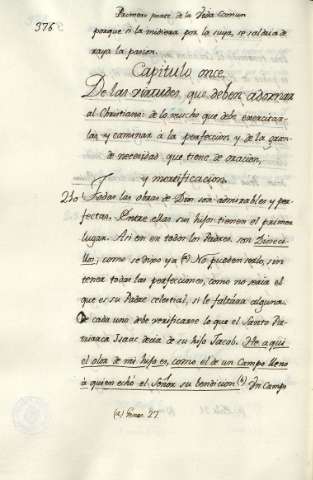 376
Primera parte de la Vida comun
porque si la midiera por la suya, se saldria de
raya la pasion.
Capitulo once.
De las virtudes, que deben adornar
al Christiano: de lo mucho que debe exercitar-
las y caminar à la perfeccion y de la gran-
de necesidad, que tiene de oracion,
y mortificacion.
210 Todas las obras de Dios son admirables y per-
fectas. Entre ellas sus hijos tienen el primer
lugar. Asi en en todos los Padres son
como se dixo ya (*) No pueden serlo, sin
tener todas las perfecciones, como no seria el
que es su Padre celestial, si le faltára alguna.
De cada uno debe verificarse lo que el Santo Pa-
triarca Isaac decia de su hijo Jacob. He aqui
el olor de mi hijo es, como el de un Campo lleno
à quien echó el Señor su bendicion (*) Un Campo
(*) Genes. 27.